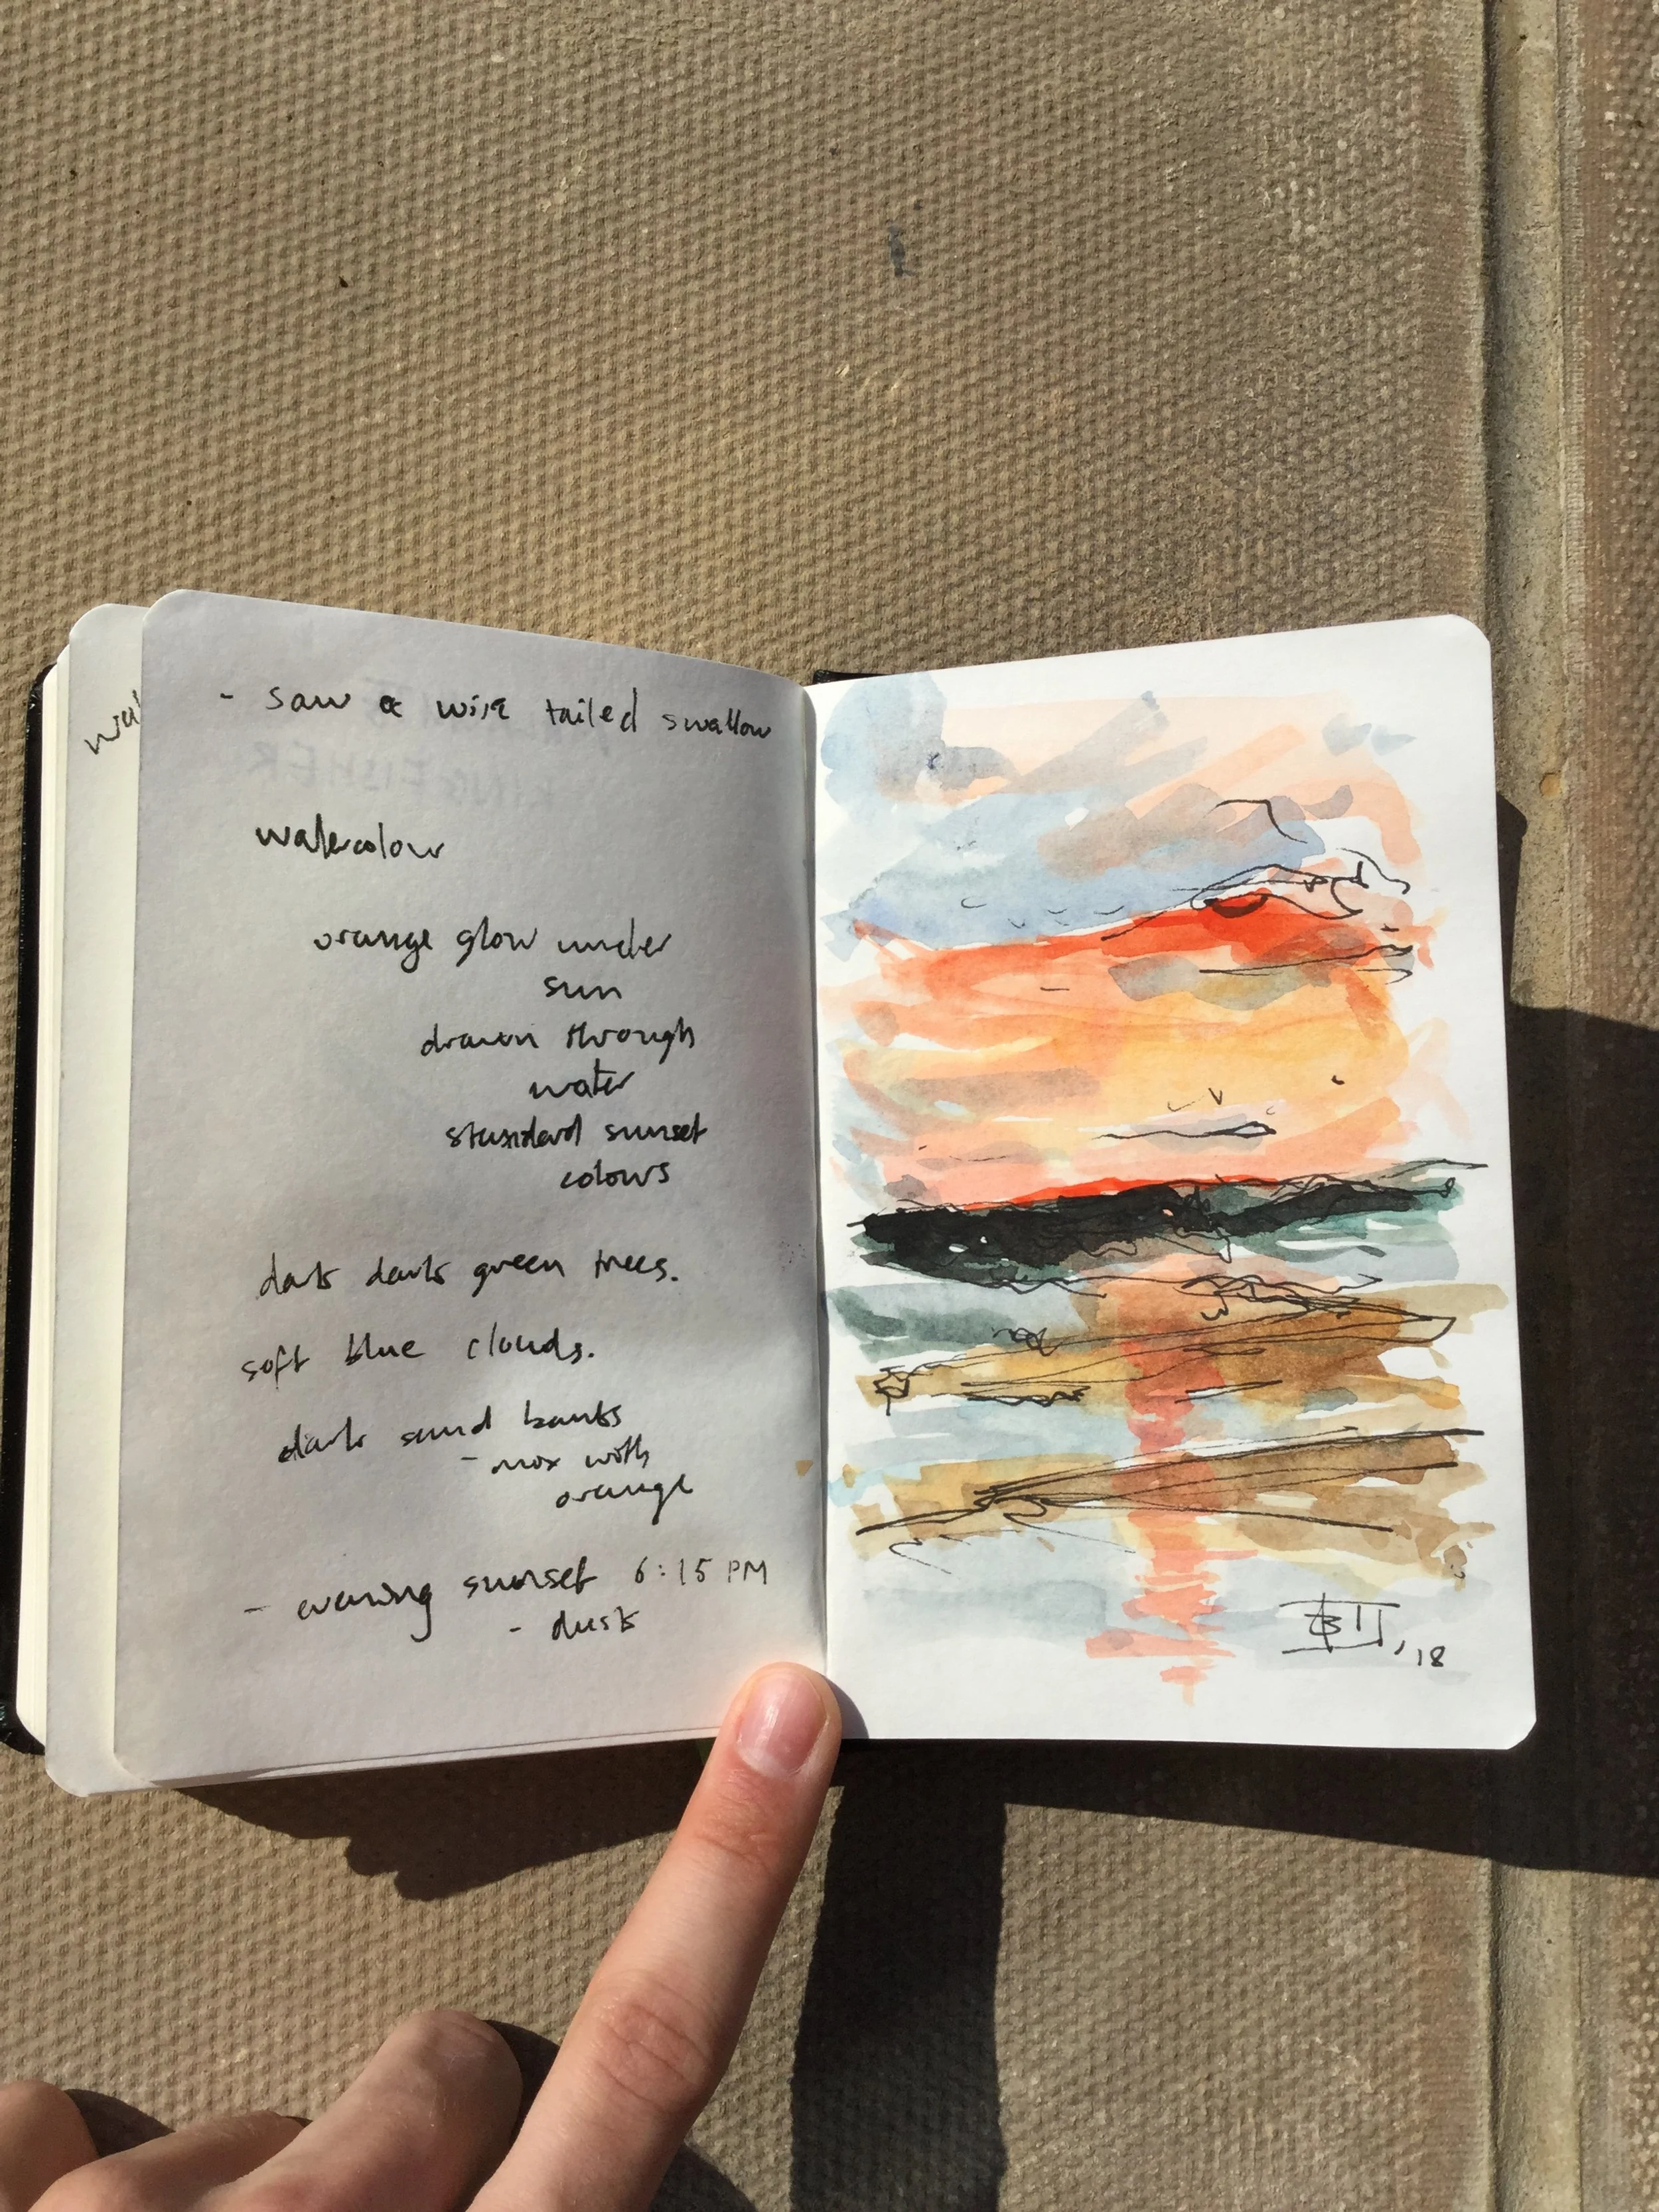 - saw a wire tailed swallow
watercolour
orange glow under
sun
drawn through
water
standard sunset
colours
dark dark green trees.
soft blue clouds.
dark sand banks
- mix with
orange
- evening sunset 6:15 PM
- dusk
KINGFISHER
,18